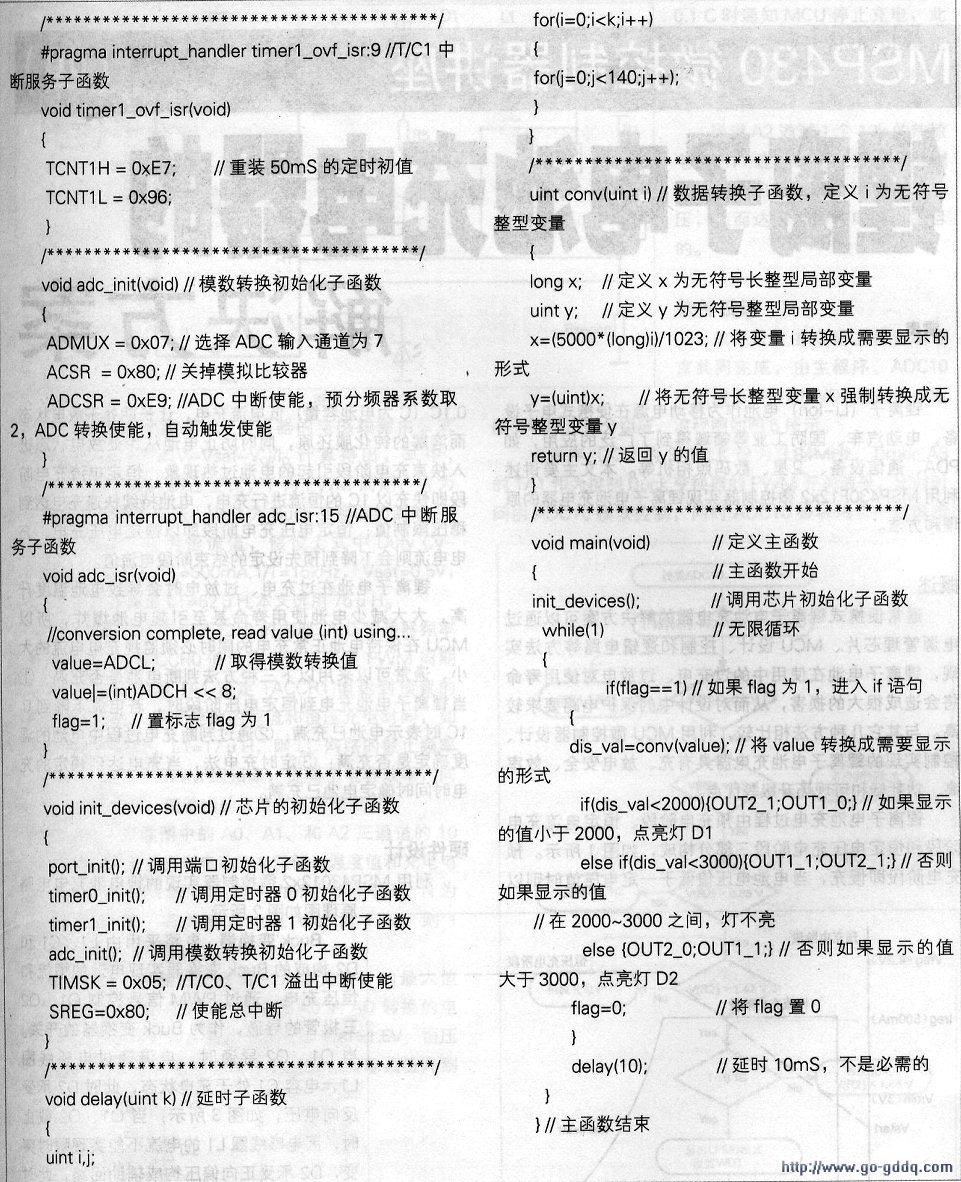 /***************************************/
#pragma interrupt_handler timer1_ovf_isr:9 //T/C1 中
断服务子函数
void timer1_ovf_isr(void)
{
TCNT1H = 0xE7; // 重装 50mS 的定时初值
TCNT1L = 0x96;
}
/*************************************/
void adc_init(void) // 模数转换初始化子函数
{
ADMUX = 0x07; // 选择 ADC 输入通道为 7
ACSR = 0x80; // 关掉模拟比较器
ADCSR = 0xE9; //ADC 中断使能，预分频器系数取
2，ADC 转换使能，自动触发使能
}
/*************************************/
#pragma interrupt_handler adc_isr:15 //ADC 中断服
务子函数
void adc_isr(void)
{
//conversion complete, read value (int) using...
value=ADCL; // 取得模数转换值
value|=(int)ADCH << 8;
flag=1; // 置标志 flag 为 1
}
/**************************************/
void init_devices(void) // 芯片的初始化子函数
{
port_init(); // 调用端口初始化子函数
timer0_init(); // 调用定时器 0 初始化子函数
timer1_init(); // 调用定时器 1 初始化子函数
adc_init(); // 调用模数转换初始化子函数
TIMSK = 0x05; //T/C0、T/C1 溢出中断使能
SREG=0x80; // 使能总中断
}
/**************************************/
void delay(uint k) // 延时子函数
{
uint i,j;
for(i=0;i<k;i++)
{
for(j=0;j<140;j++);
}
}
/*************************************/
uint conv(uint i) // 数据转换子函数，定义 i 为无符号
整型变量
{
long x; // 定义 x 为无符号长整型局部变量
uint y; // 定义 y 为无符号整型局部变量
x=(5000*(long)i)/1023; // 将变量 i 转换成需要显示的
形式
y=(uint)x; // 将无符号长整型变量 x 强制转换成无
符号整型变量 y
return y; // 返回 y 的值
}
/*************************************/
void main(void) // 定义主函数
{ // 主函数开始
init_devices(); // 调用芯片初始化子函数
while(1) // 无限循环
{
if(flag==1) // 如果 flag 为 1，进入 if 语句
{
dis_val=conv(value); // 将 value 转换成需要显示
的形式
if(dis_val<2000){OUT2_1;OUT1_0;} // 如果显示
的值小于 2000，点亮灯 D1
else if(dis_val<3000){OUT1_1;OUT2_1;} // 否则
如果显示的值
// 在 2000~3000 之间，灯不亮
else {OUT2_0;OUT1_1;} // 否则如果显示的值
大于 3000，点亮灯 D2
flag=0; // 将 flag 置 0
}
delay(10); // 延时 10mS，不是必需的
}
} // 主函数结束
http://www.go-gddq.com